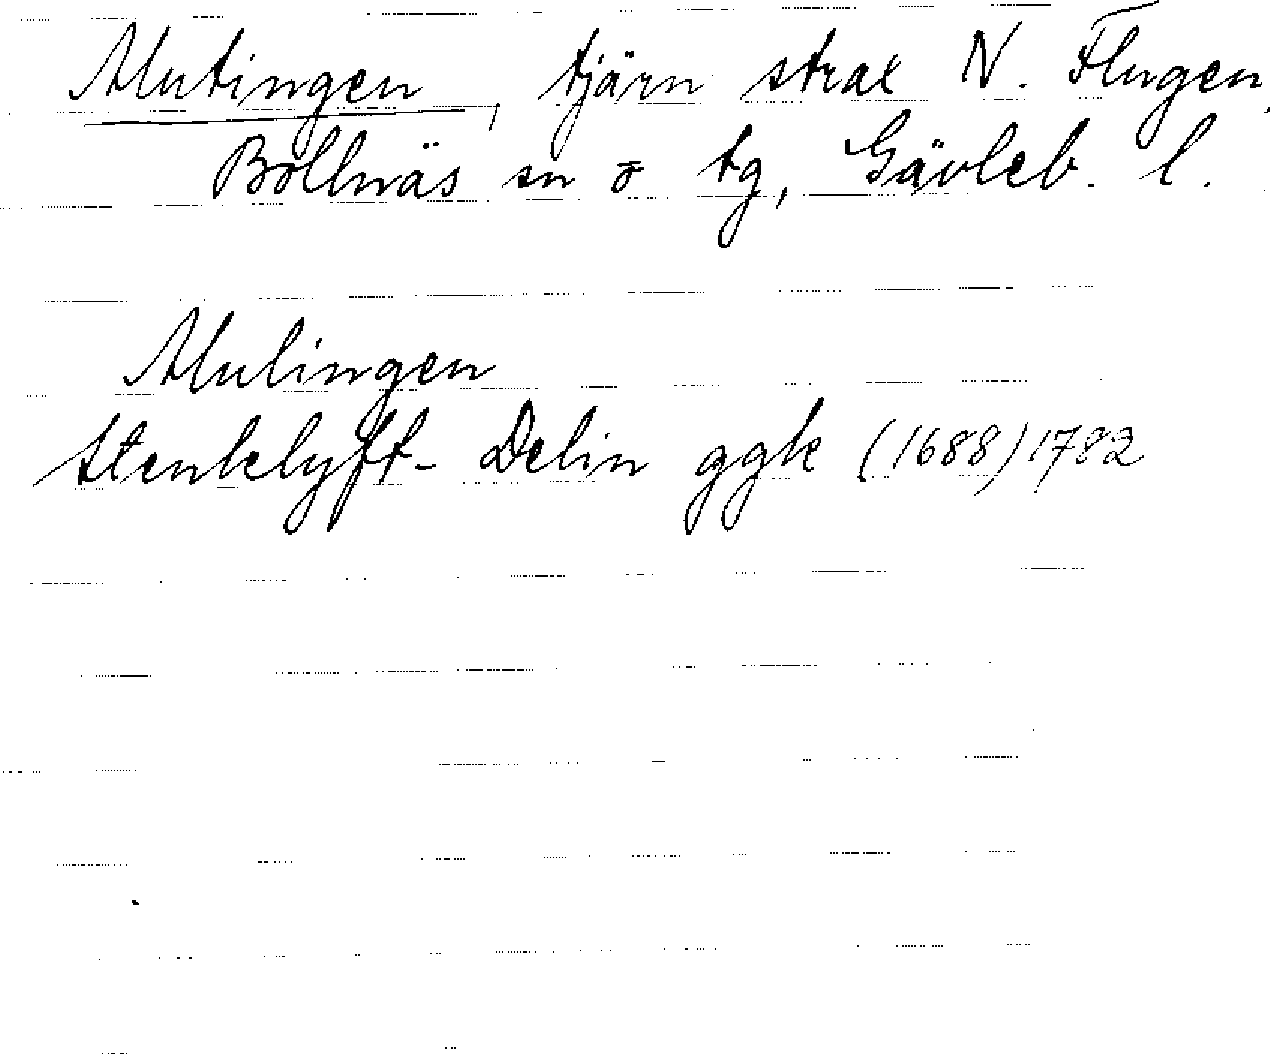 Mutingen, tjärn strax N. Flugen,
Bollnäs sn o tg, Gävleb. l.
Mulingen
Stenklyft- Delin ggk (1688) 1782